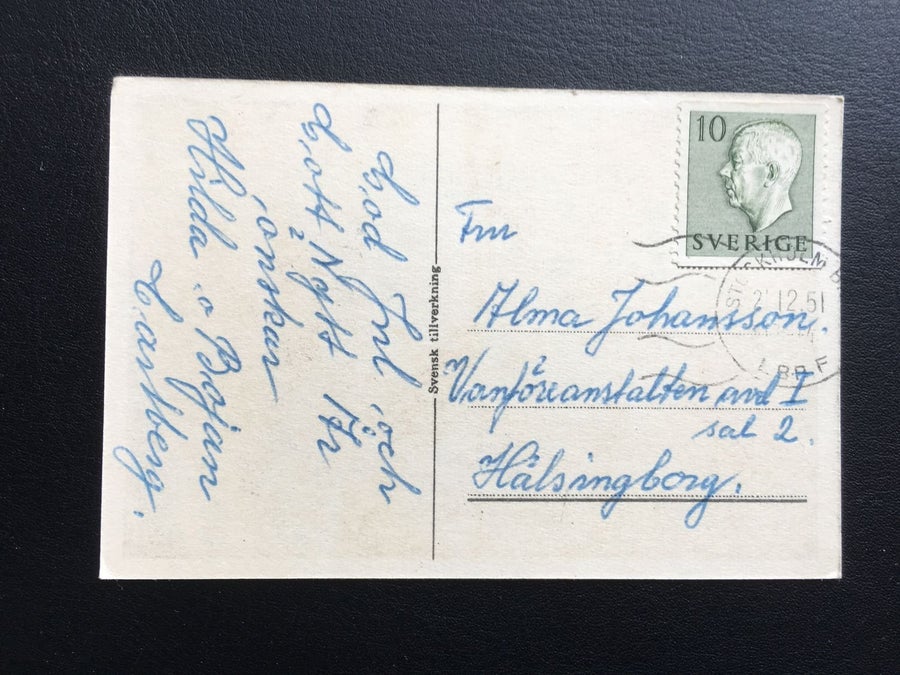 God Jul och
Gott Nytt År
önskar
Hilda o Början
Carlberg.
Svensk tillverkning
10
SVERIGE
STOCKHOLM
2 12.51
Fru
Alma Johansson.
Vanföreanstalten avd I
sal 2.
Hälsingborg.